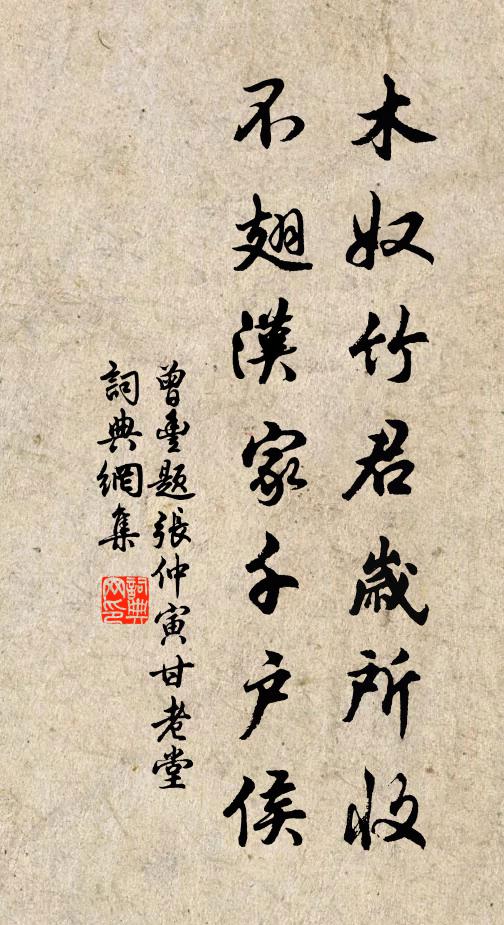 木奴竹君歲所收
不翅漢家千戶侯
曾豐題張仲寅甘老堂
詞典網集
詞典
网印